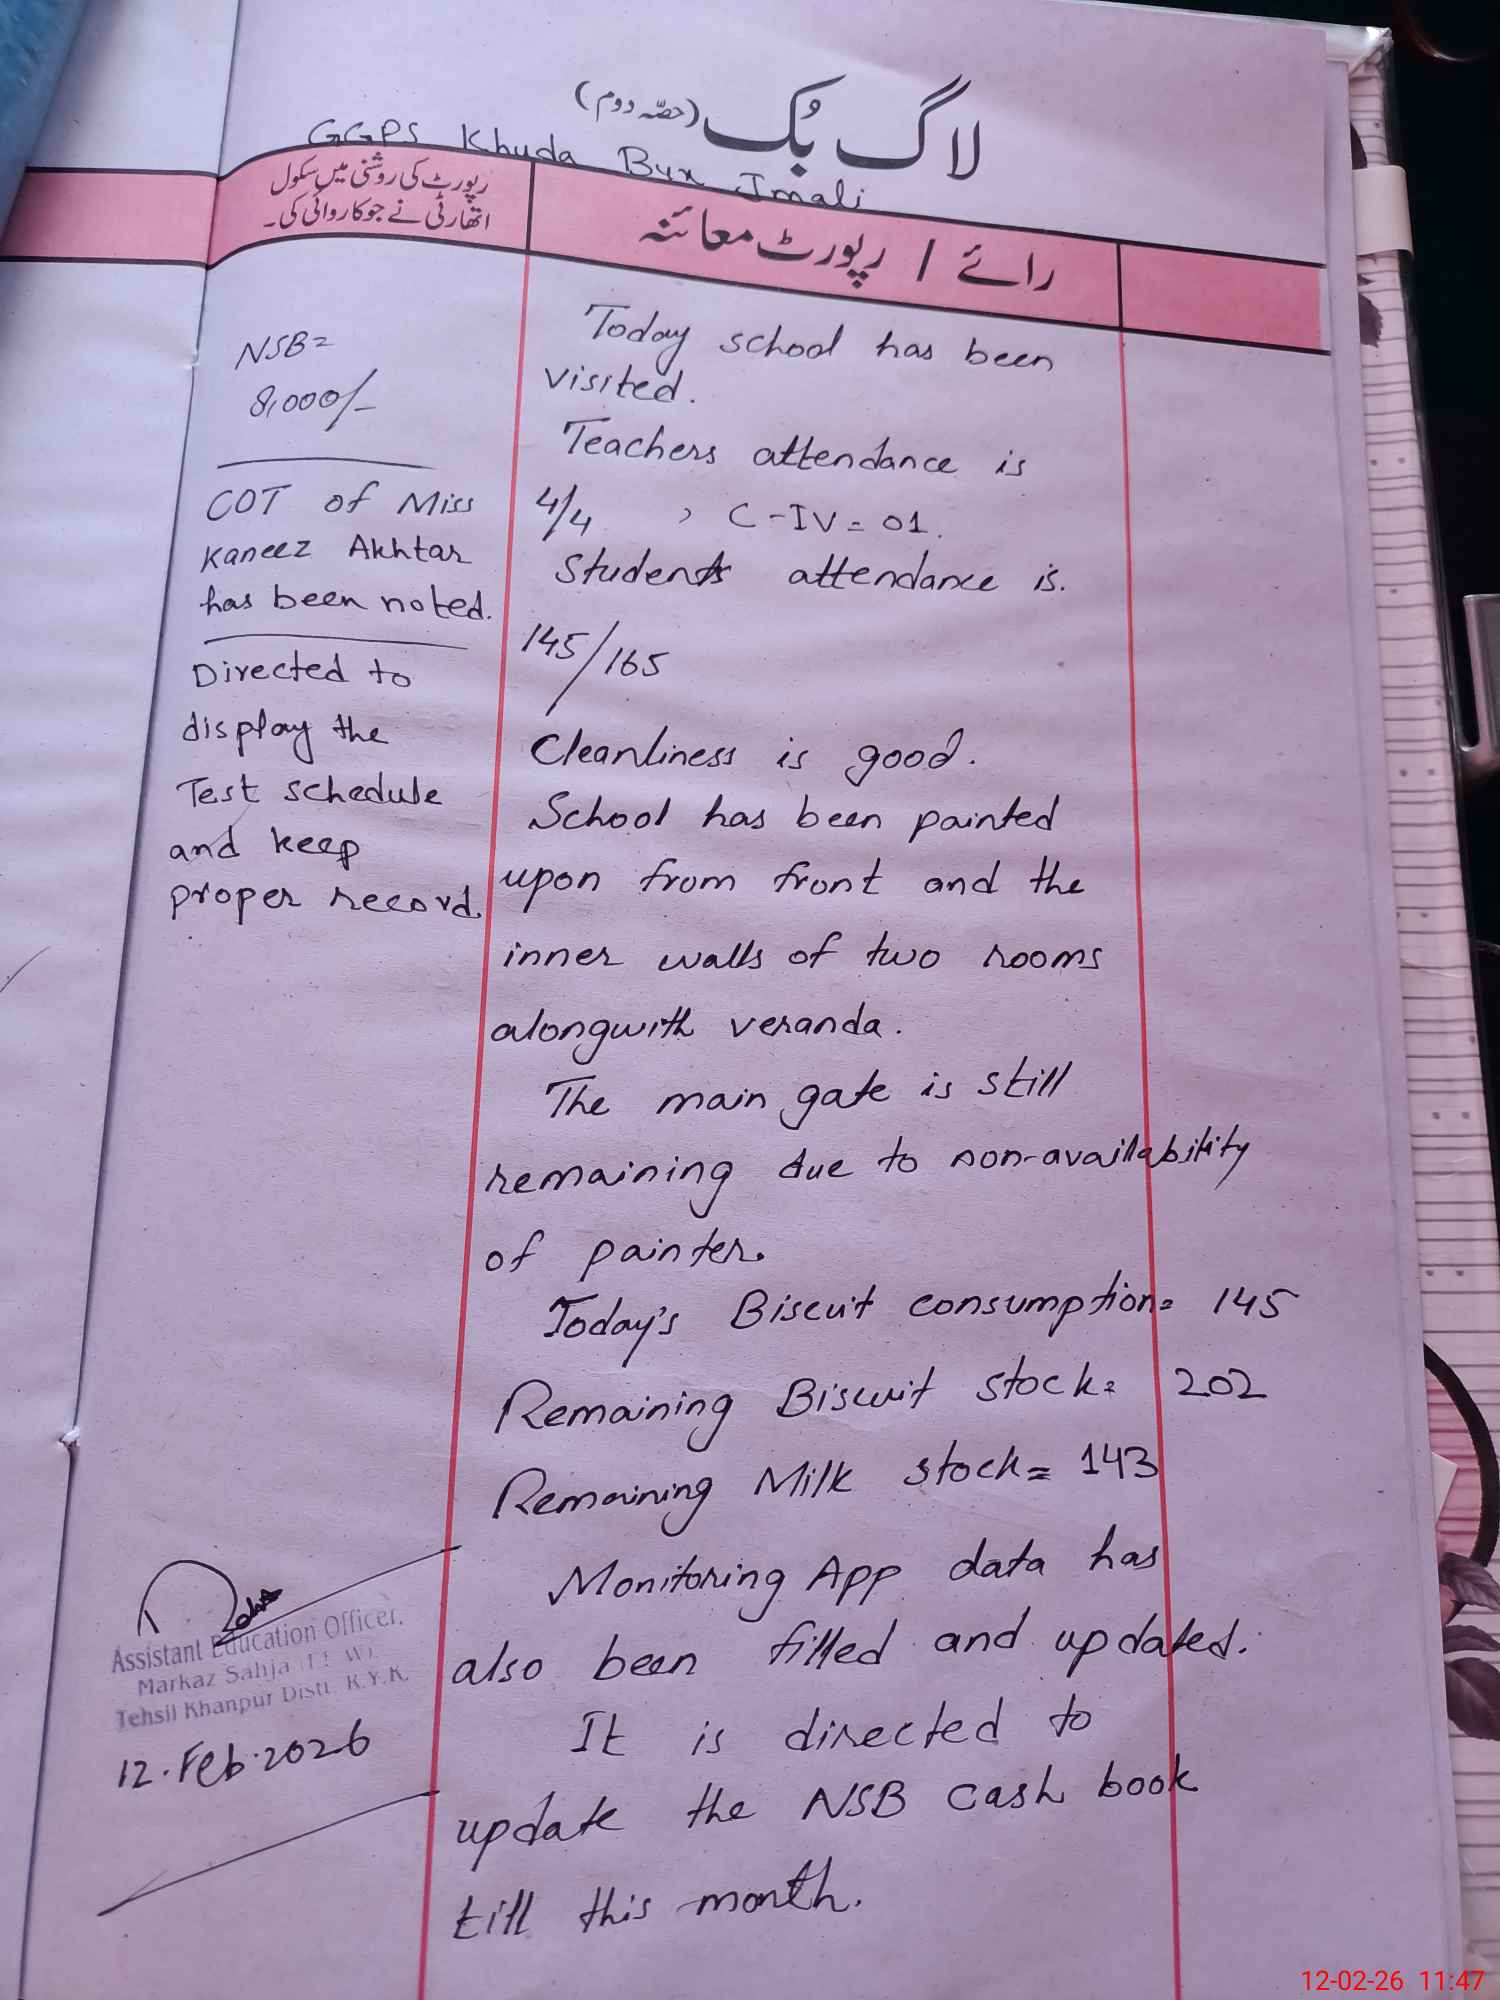 لاگ بُک (حصّہ دوم)
GGPS Khuda Bux Imali
رپورٹ کی روشنی میں سکول
اتھارٹی نے جو کاروائی کی۔
رائے / رپورٹ معائنہ
NSB=
8,000/-
COT of Miss
Kaneez Akhtar
has been noted.
Directed to
display the
Test schedule
and keep
proper record.
Today school has been
visited.
Teachers attendance is
4/4 , C-IV = 01.
Students attendance is.
145/165
Cleanliness is good.
School has been painted
upon from front and the
inner walls of two rooms
alongwith veranda.
The main gate is still
remaining due to non-availability
of painter.
Today's Biscuit consumption= 145
Remaining Biscuit stock= 202
Remaining Milk stock= 143
Monitoring App data has
also been filled and updated.
It is directed to
update the NSB cash book
till this month.
Assistant Education Officer,
Markaz Sahja
Tehsil Khanpur Distt. R.Y.K.
12.Feb.2026
12-02-26 11:47